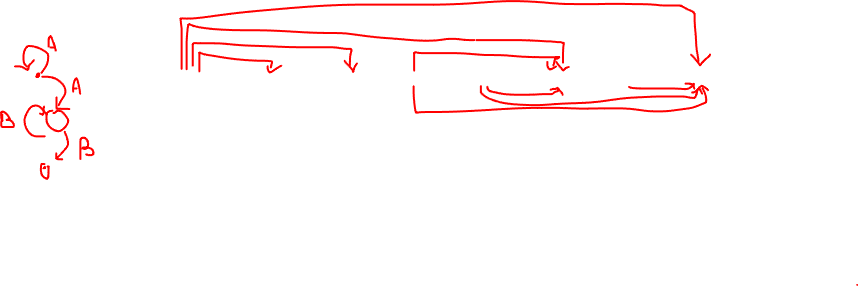 A
A
B
B